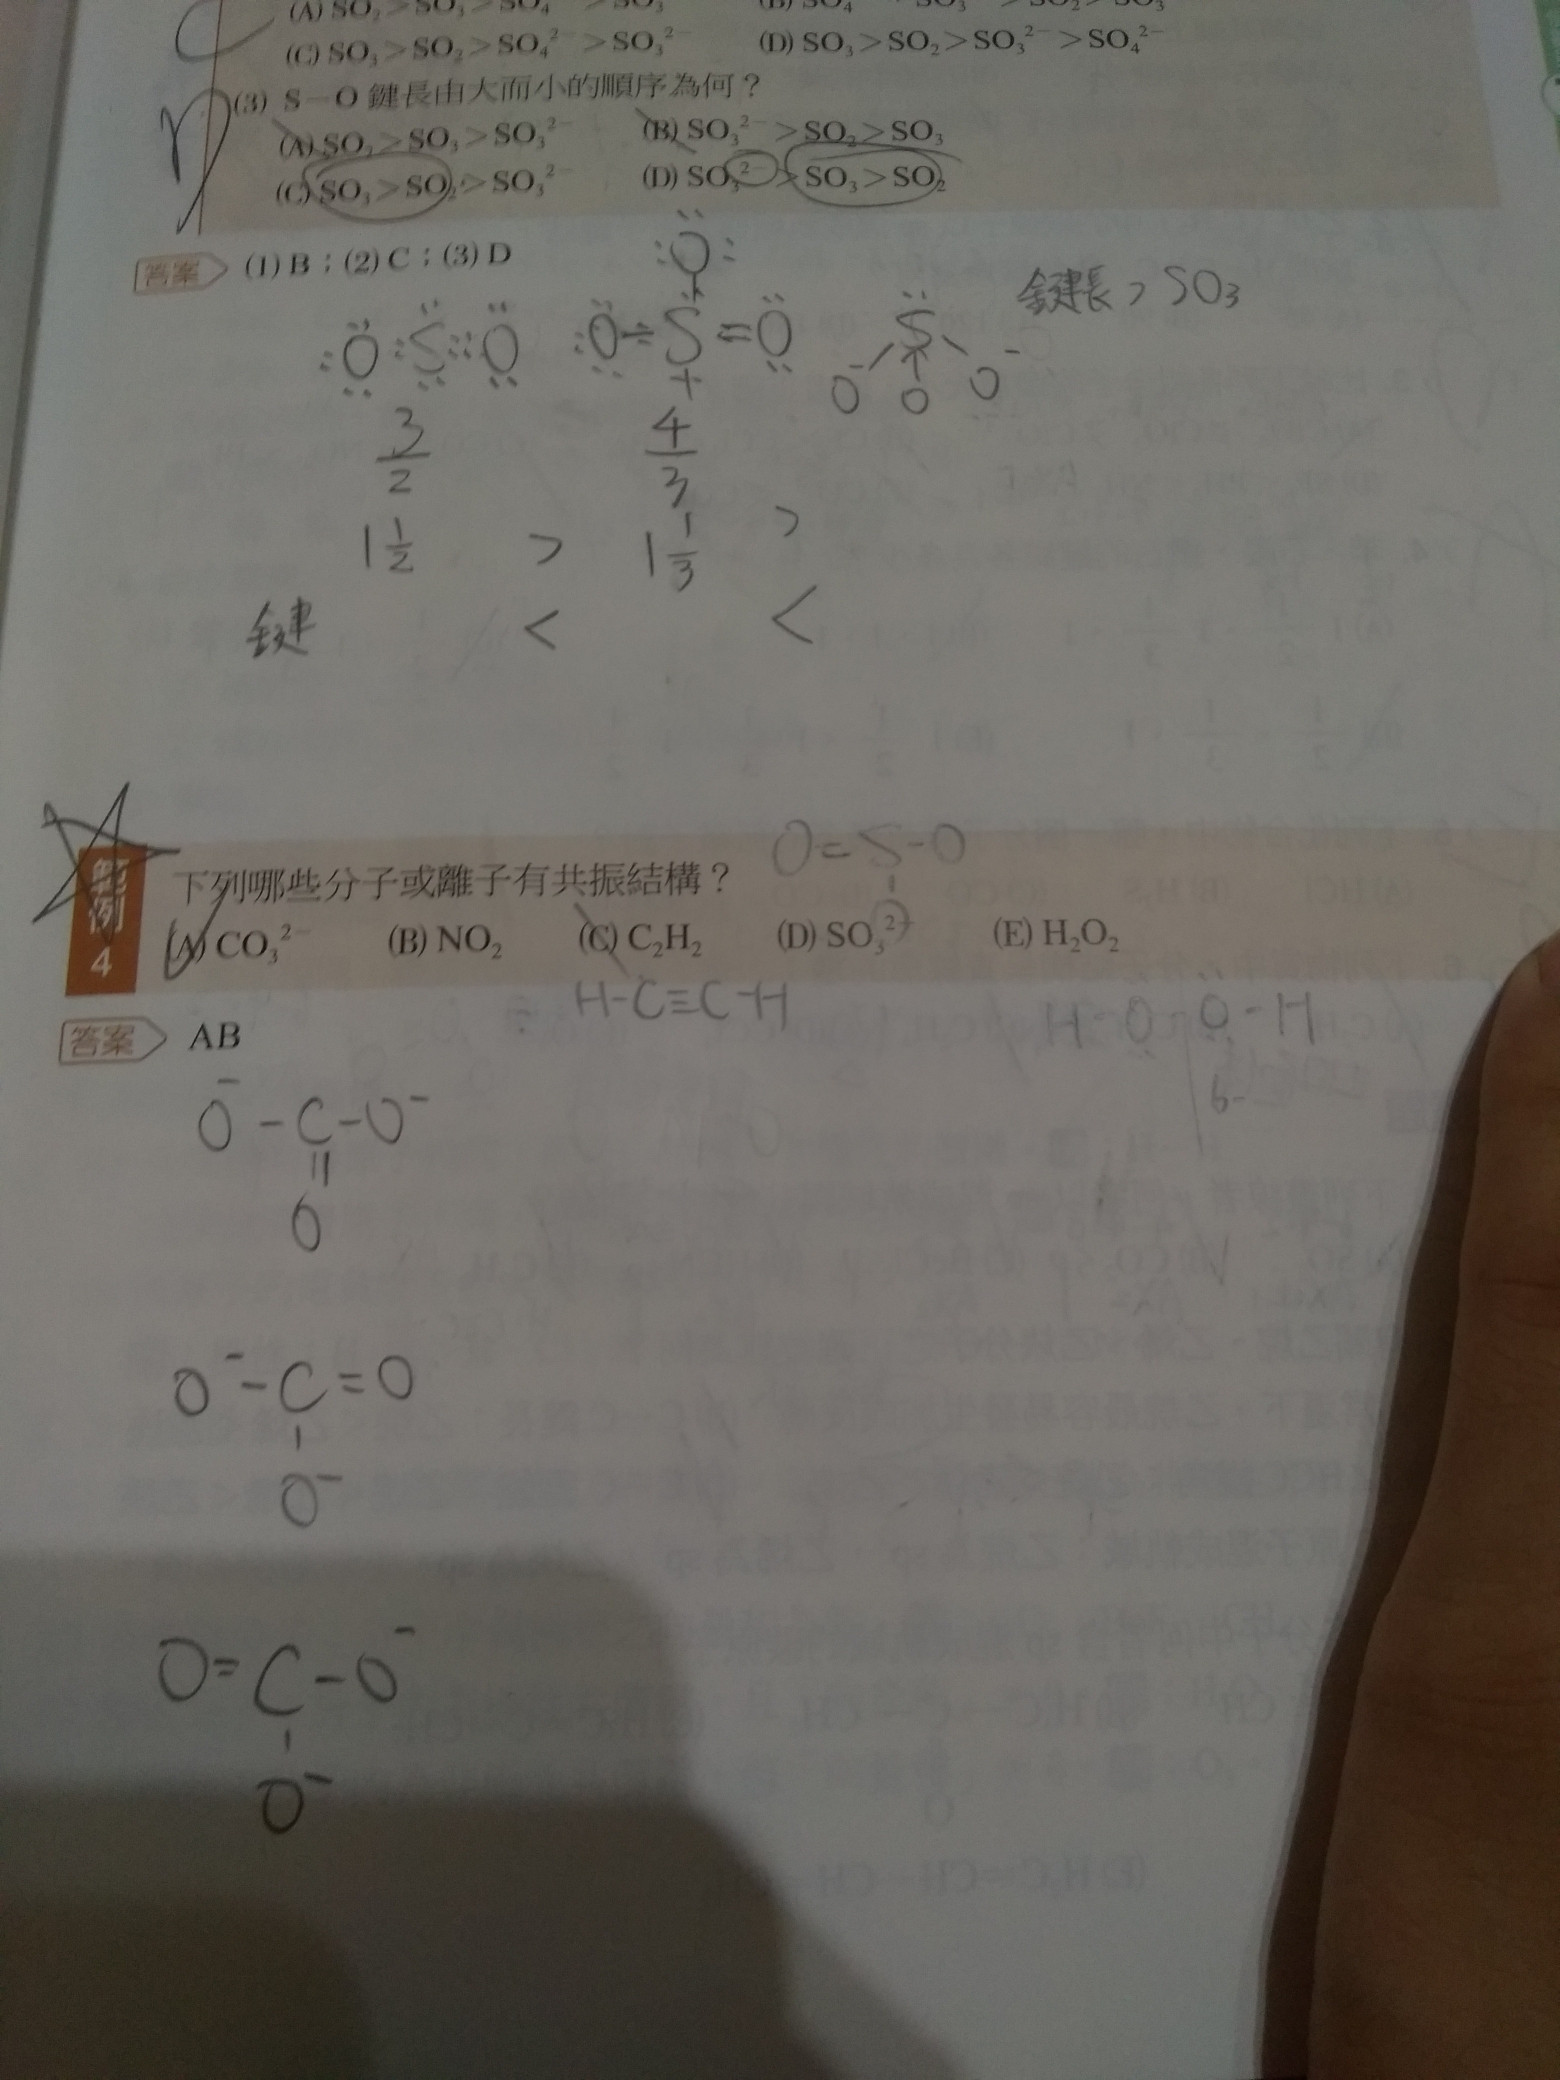 (A) SO₂ > SO₃ > SO₄²⁻ > SO₃²⁻ (B) SO₄²⁻ > SO₃²⁻ > SO₂ > SO₃
(C) SO₃ > SO₂ > SO₄²⁻ > SO₃²⁻ (D) SO₃ > SO₂ > SO₃²⁻ > SO₄²⁻
(3) S－O 鍵長由大而小的順序為何？
(A) SO₂ > SO₃ > SO₃²⁻ (B) SO₃²⁻ > SO₂ > SO₃
(C) SO₃ > SO₂ > SO₃²⁻ (D) SO₃²⁻ > SO₃ > SO₂
答案 (1) B；(2) C；(3) D
O
鍵長 > SO₃
O S O O - S = O S
+ O⁻ O O⁻
3/2 4/3
1 1/2 > 1 1/3 >
鍵 < <
O=S-O
範例 4 下列哪些分子或離子有共振結構？
(A) CO₃²⁻ (B) NO₂ (C) C₂H₂ (D) SO₃²⁻ (E) H₂O₂
H-C≡C-H H-O-O-H
答案 AB
O⁻-C-O⁻
||
O
O⁻-C=O
|
O⁻
O=C-O⁻
|
O⁻